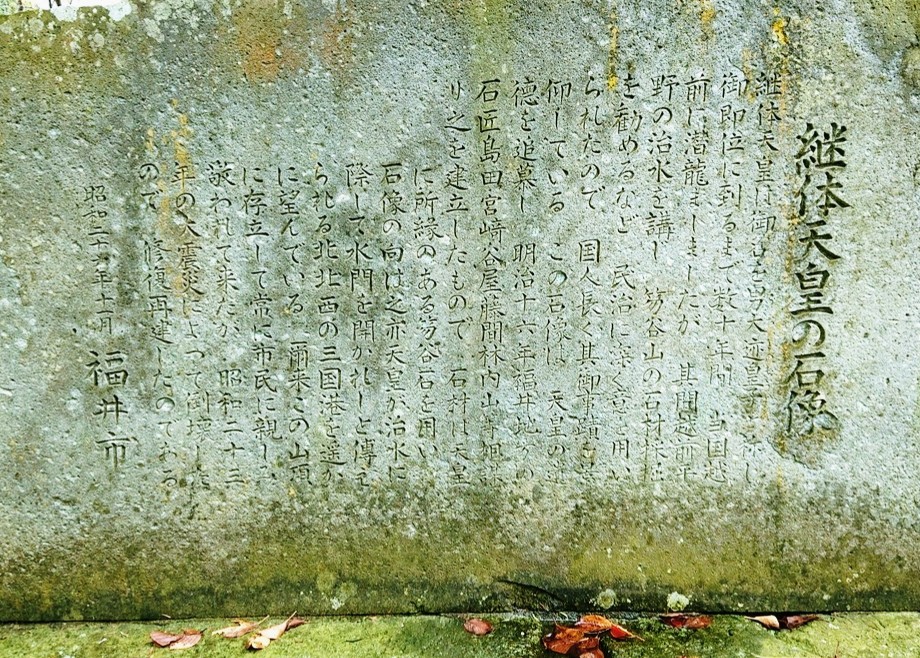 継体天皇の石像
継体天皇は御名を男大迹皇子と称し
御即位に到るまで 数十年間 当国越
前に潜龍ましましたが 其間越前平
野の治水を講し 笏谷山の石材採掘
を勧めるなど 民治に深く意を用い
られたので 国人長く其御事蹟を景
仰している この石像は 天皇の遺
徳を追慕し 明治十六年福井地方の
石匠島田宮﨑谷屋藤間林内山等
り之を建立したもので 石材は天皇
に所縁のある笏谷石を用い
石像の向は之亦天皇が治水に
際して水門を開かれしと傳え
られる北北西の三国港を遥か
に望んでいる 爾来この山頂
に存立して常に市民に親しみ
敬われて来たが 昭和二十三
年の大震災によって倒壊した
ので 修復再建したのである
昭和二十八年十一月 福井市